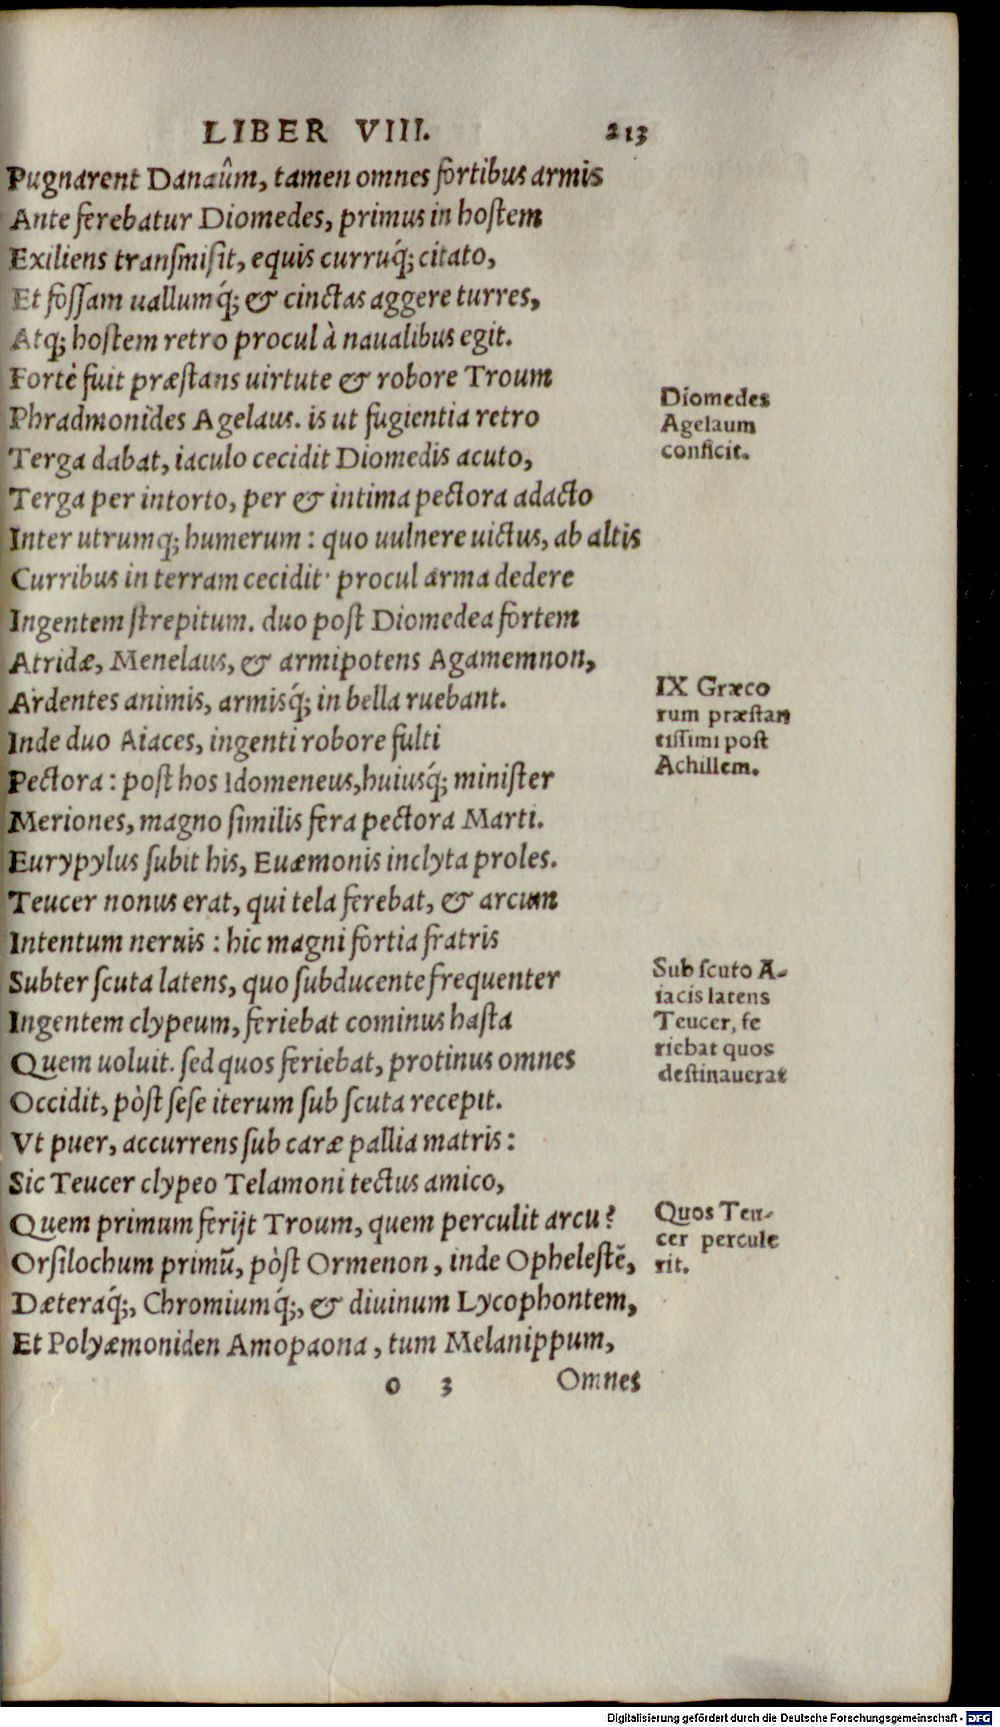 LIBER VIII. 213
Pugnarent Danaûm, tamen omnes fortibus armis
Ante ferebatur Diomedes, primus in hostem
Exiliens transmisit, equis curruq́; citato,
Et fossam uallumq́; & cinctas aggere turres,
Atq; hostem retro procul à naualibus egit.
Fortè fuit præstans uirtute & robore Troum
Phradmonides Agelaus. is ut fugientia retro
Terga dabat, iaculo cecidit Diomedis acuto,
Terga per intorto, per & intima pectora adacto
Inter utrumq; humerum : quo uulnere uictus, ab altis
Curribus in terram cecidit· procul arma dedere
Ingentem strepitum. duo post Diomedea fortem
Atridæ, Menelaus, & armipotens Agamemnon,
Ardentes animis, armisq́; in bella ruebant.
Inde duo Aiaces, ingenti robore fulti
Pectora : post hos Idomeneus, huiusq́; minister
Meriones, magno similis fera pectora Marti.
Eurypylus subit his, Euæmonis inclyta proles.
Teucer nonus erat, qui tela ferebat, & arcum
Intentum neruis : hic magni fortia fratris
Subter scuta latens, quo subducente frequenter
Ingentem clypeum, feriebat cominus hasta
Quem uoluit. sed quos feriebat, protinus omnes
Occidit, pòst sese iterum sub scuta recepit.
Vt puer, accurrens sub caræ pallia matris :
Sic Teucer clypeo Telamoni tectus amico,
Quem primum ferijt Troum, quem perculit arcu?
Orsilochum primũ, pòst Ormenon, inde Ophelestẽ,
Dæteraq́;, Chromiumq́;, & diuinum Lycophontem,
Et Polyæmoniden Amopaona, tum Melanippum,
o 3 Omnes
Diomedes
Agelaum
conficit.
IX Græco
rum præstan
tissimi post
Achillem.
Sub scuto A-
iacis latens
Teucer, fe
riebat quos
destinauerat
Quos Teu-
cer percule
rit.
Digitalisierung gefördert durch die Deutsche Forschungsgemeinschaft - DFG